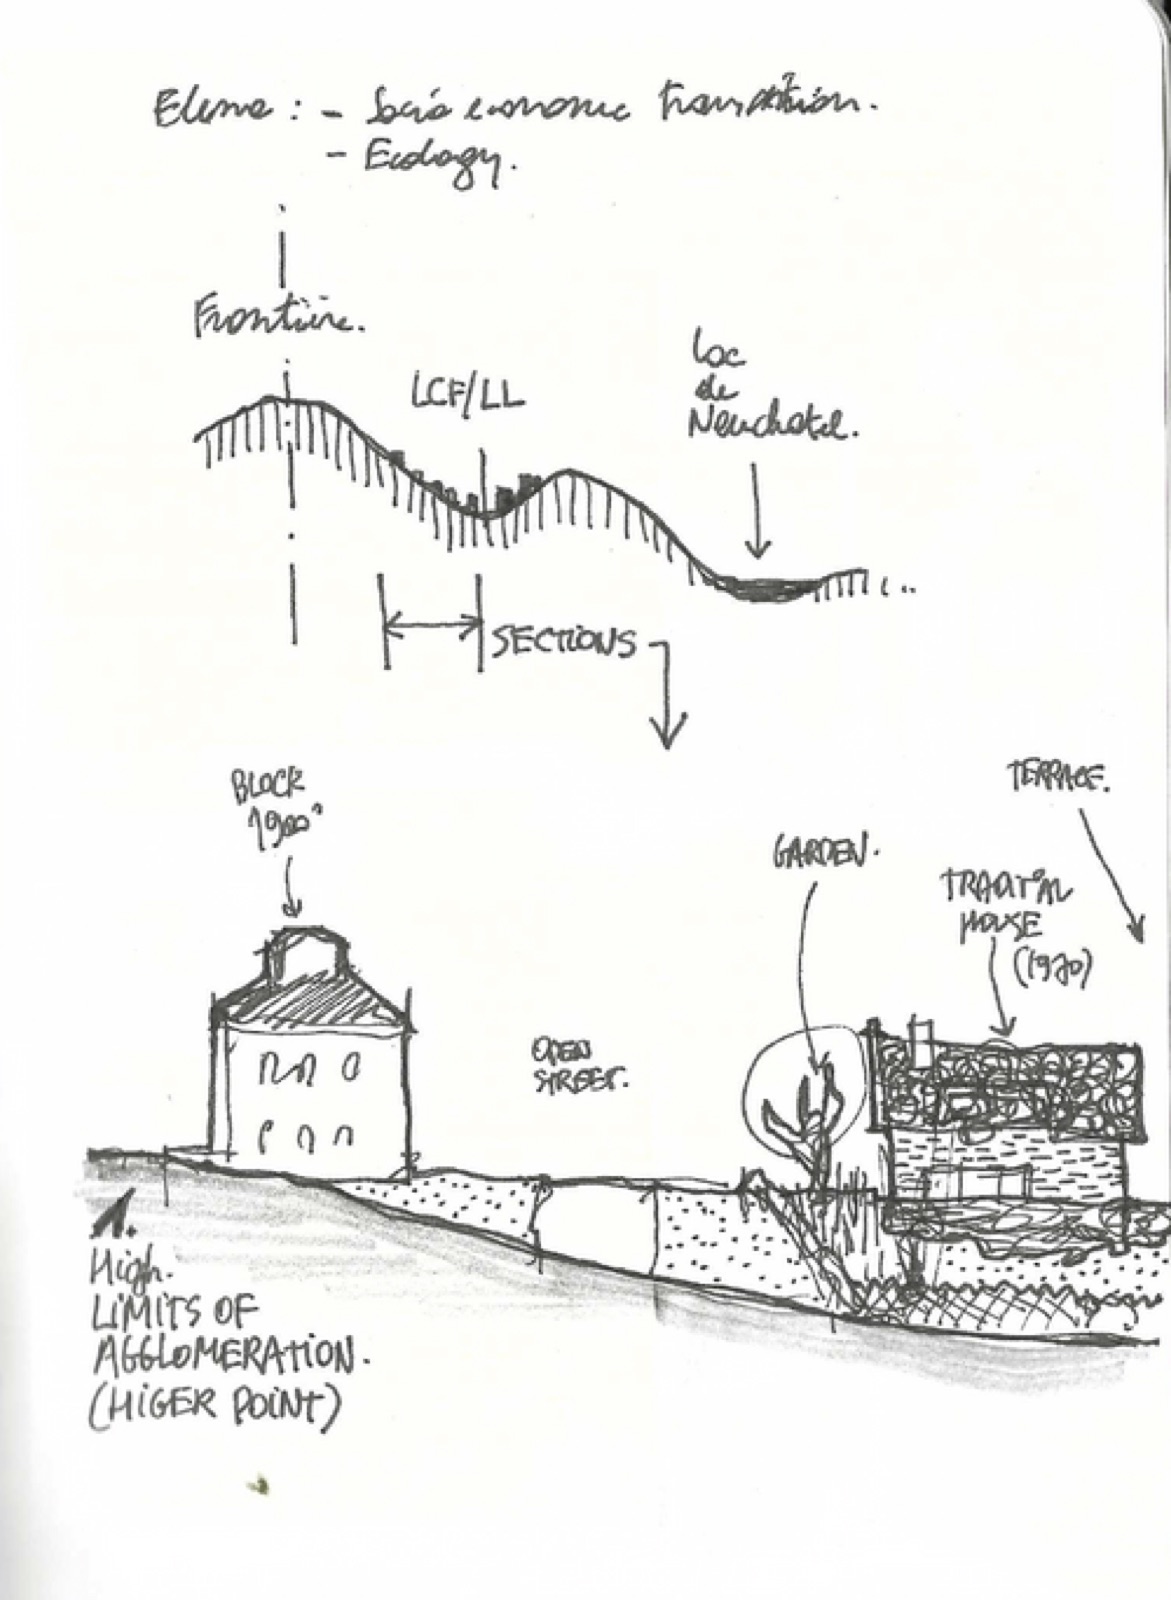 Eleme : - Socio economic transition.
- Ecology.
Frontière.
LCF/LL
Lac
de
Neuchatel.
SECTIONS
BLOCK
1900'
TERRACE.
GARDEN.
HOUSE
OPEN
STREET.
1.
High.
LIMITS OF
AGGLOMERATION.
(HIGER POINT)